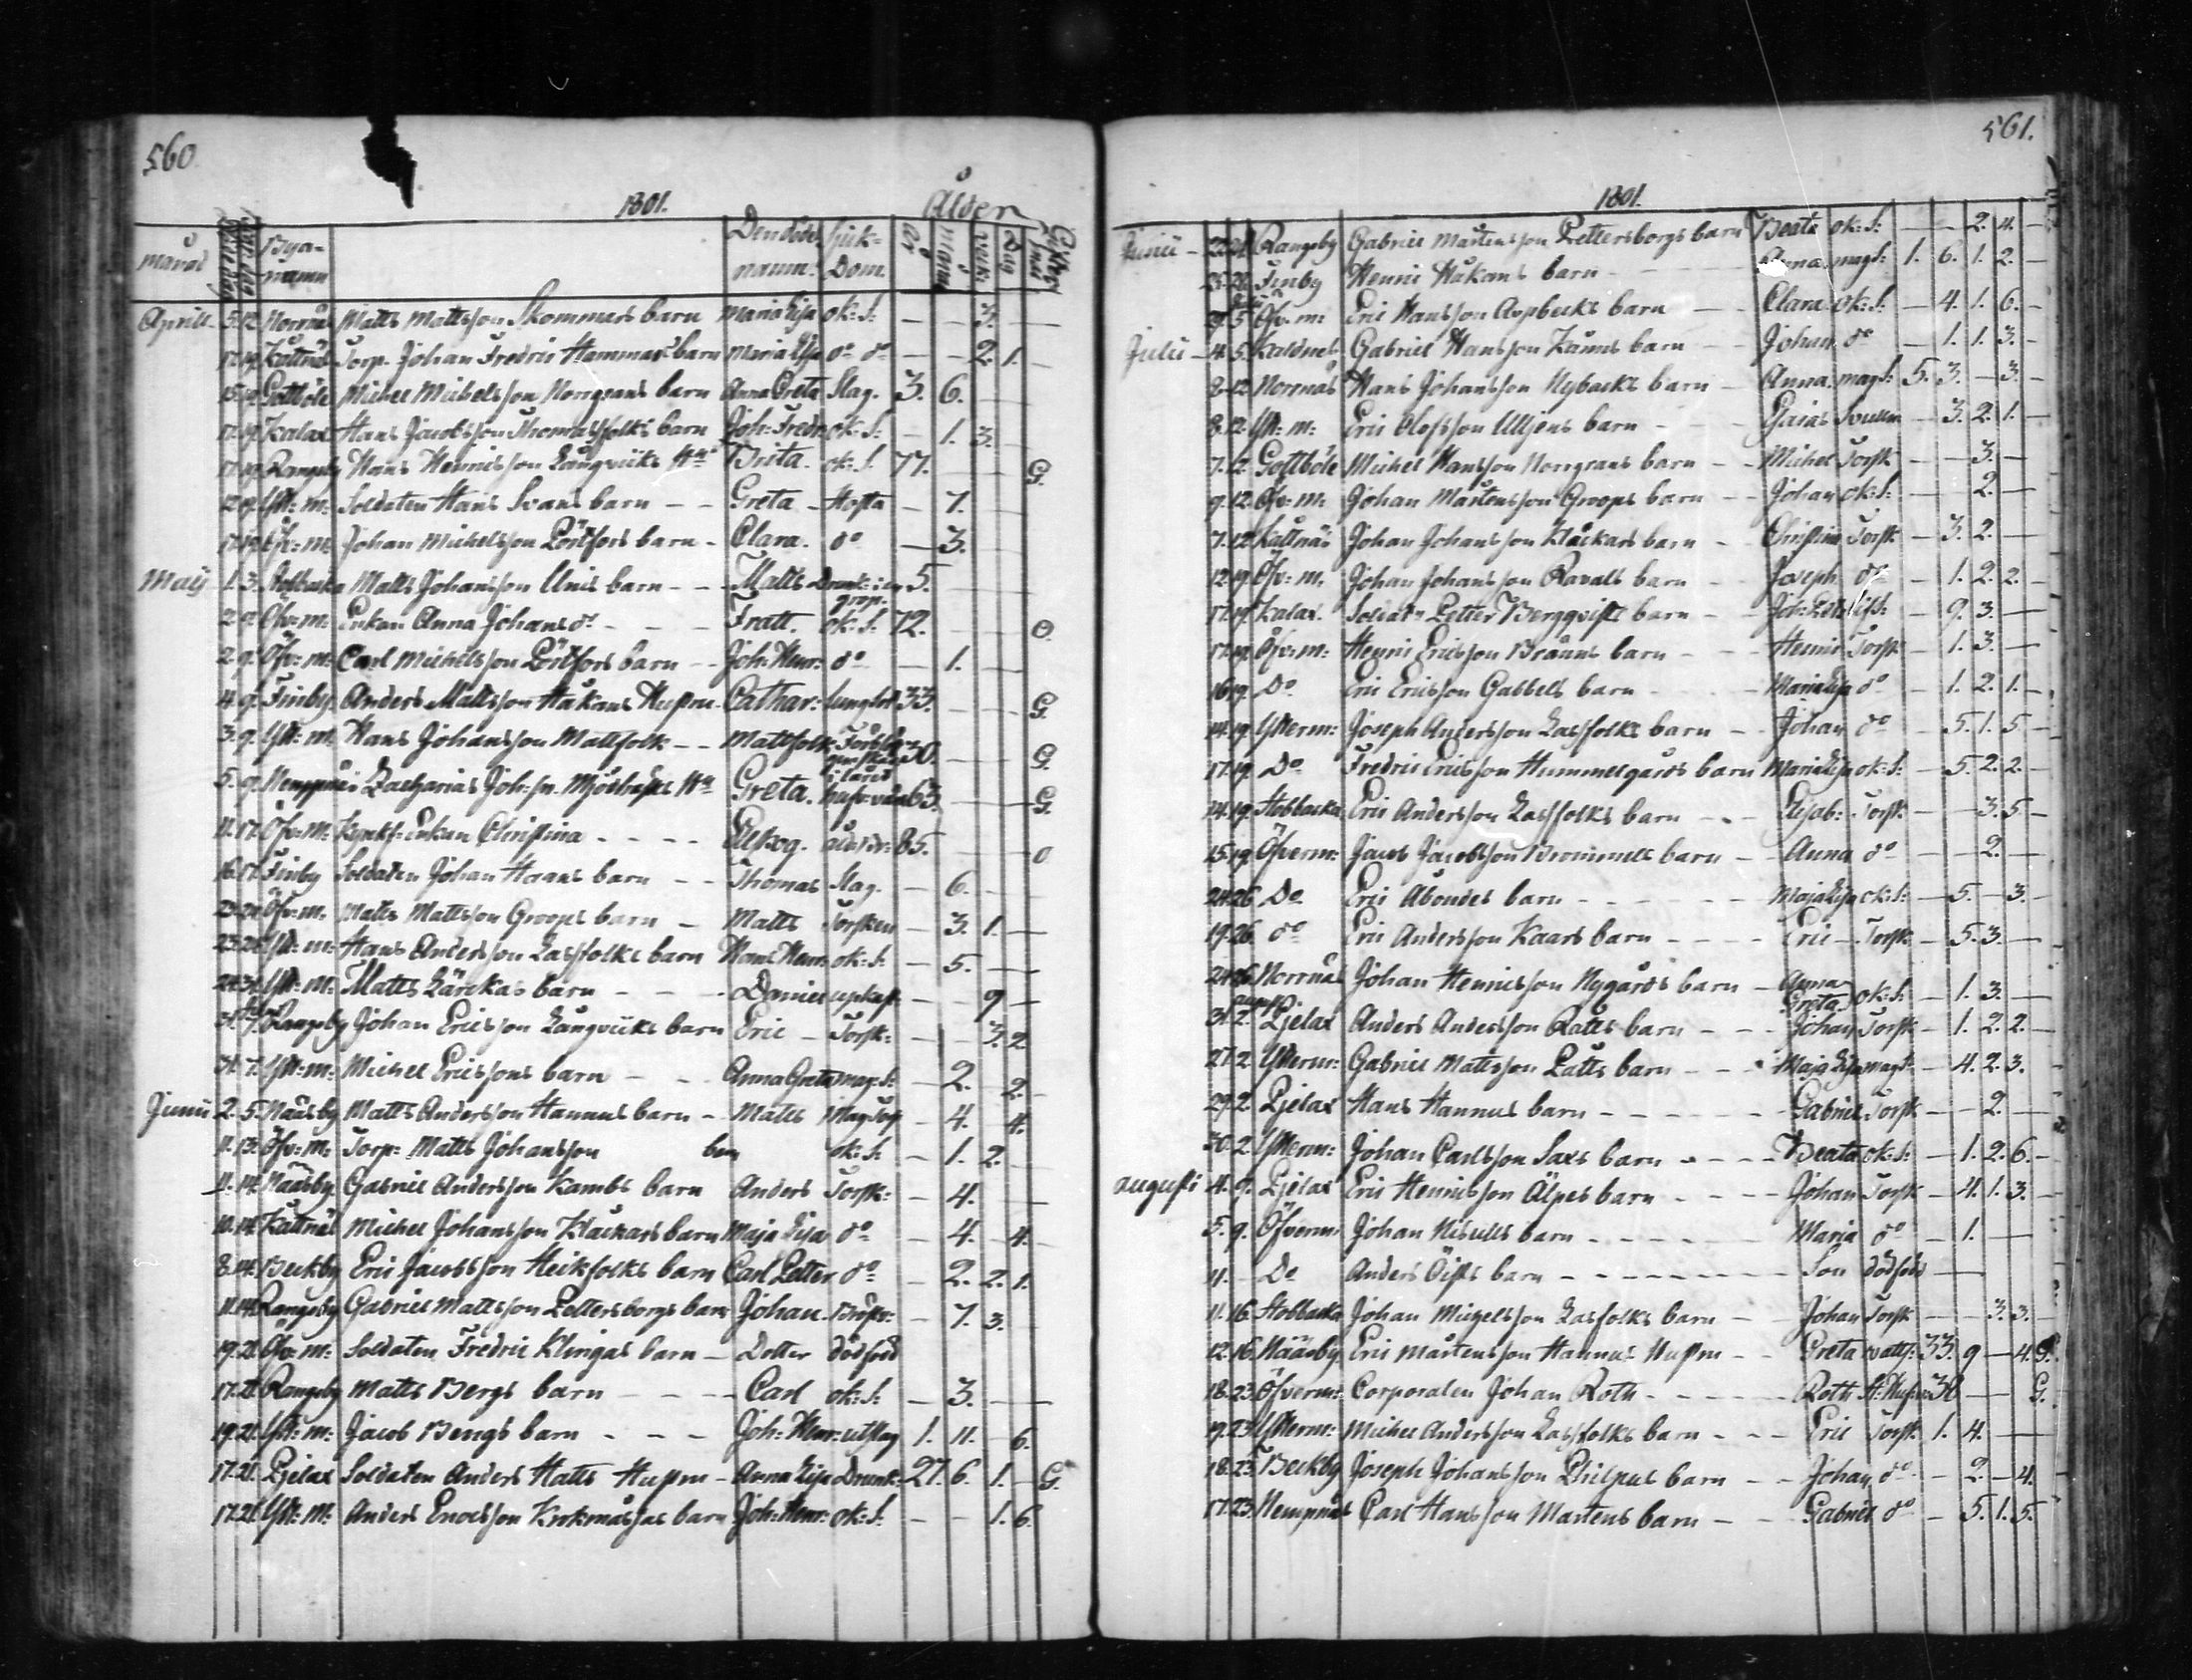 560.
1801. Ålder
månad Bya-namn Den dödes namn. Sjuk-Dom. år Mån Vick: Dag
Aprill 5. 12. Norrnäs Matts Mattsson Skommars barn Maria Lisa ok: S: — — 3. —
17. 19. Kåttnäs Torp. Johan Fredric Hammars barn Maria Lisa do do — — 2. 1. —
15. 19. Gottböle Michel Michelsson Norrgrans barn Anna Greta Slag. 3. 6. —
17. 19. Kalax Hans Jacobsson Thomasfolks barn Joh: Fredr: ok: S: — 1. 3.
17. 19. Rangsby Hans Henricsson Långviiks Brita. ok: S. 77. — — G.
12. 19. Ytt: m: Soldaten Hans Svans barn — — Greta — Hosta — 7.
17. 19. Öfv: m: Johan Michelsson Pörtfors barn — Clara. do — 3.
Maij 1. 3. Matts Johansson Unis barn — — Matts Drunk: i en grop. 5.
2. 9. Öfv: m: Enkan Anna Johans d: — — Fratt. ok: S: 72. — — O.
2. 9. Öfv: m: Carl Michelsson Pörtfors barn — — Joh: Henr: do — 1. —
4. 9. Finby Anders Mattsson Håkans Hustru Cathar: lungsot 33. — — G.
3. 9. Ytt: m. Hans Johansson Mattfolk — — Mattfolk 30. — — G.
5. 9. Nämpnäs Zacharias Joh: sn. Mjödbäcks Greta. 63. — — G.
11. 17. Öfv: m: Enkan Christina — — — — Elskog. 85. — — O
16. 17. Finby Soldaten Johan Haans barn — — Thomas Slag. — 6. —
23. 24. Öfv: m. Matts Mattsson Groops barn — Matts Torsken — 3. 1. —
23. 25. Ytt: m: Hans Andersson Lassfolks barn Hans Henr: ok: S: — 5. —
24. 31. Ytt: m: Matts Lärckas barn — — — Daniel — — 9 —
31. 7. Rangsby Johan Ericsson Långviiks barn Eric — Torsk: — — 3. 2
31. 7. Ytt: m: Michel Ericssons barn — — Anna Greta mag: S: — 2. — 2. —
Junii 2. 5. Näsby Matts Andersson Hannus barn — Matts — 4. — 4.
11. 13. Öfv: m: Torp: Matts Johansson barn ok: S: — 1. 2.
11. 14. Nääsby Gabriel Andersson Kambs barn Anders Torsk: — 4. —
10. 14. Kåttnäs Michel Johansson Klåckars barn Maja Lisa do — 4. — 4.
8. 14. Beckby Eric Jacobsson Heikfolks barn Carl Petter do — 2. 2. 1.
11. 14. Rangsby Gabriel Mattsson Pettersborgs barn Johan. — 7. 3.
19. 21. Öfv: m: Soldaten Fredric Klingas barn — Dotter dödfödd
17. 21. Rangsby Matts Bergs barn — — — — Carl ok: S: — 3. — —
19. 21. Ytt: m: Jacob Bergs barn — — — Joh: Henr: utslag 1. 11. — 6.
17. 21. Pjelax Soldaten Anders Hatts Hustru — Anna Lisa Drunk: 27. 6. 1. — G.
17. 21. Ytt: m: Anders Enocsson barn Joh: Henr: ok: S: — — 1. 6.
561.
1801.
Junii — Rangsby Gabriel Mårtensson Pettersborgs barn Beata ok: S: — — 2. 4. —
25. 28. Finby Henric Håkans barn — — Anna. mag S: 1. 6. 1. 2. —
29. 5. Öfv: m: Eric Hansson barn — Clara ok: S: — 4. 1. 6. —
Julii — 4. 5. Kaldnäs Gabriel Hansson barn — — Johan do — 1. 1. 3. —
8. 12. Norrnäs Hans Johansson Nybacks barn — Anna. mag S: 5. 3. — 3. —
8. 12. Ytt: m: Eric Olofsson Ulljens barn — — Esaias — 3. 2. 1. —
7. 12. Gottböle Michel Hansson Norrgrans barn — — Michel Torsk — — 3. —
9. 12. Öfv: m: Johan Mårtensson Groops barn — — Johan ok: S: — — 2. —
7. 12. Kåttnäs Johan Johansson Klåckars barn — Christina Torsk — 3. 2. —
12. 19. Öfv: m. Johan Johansson Ravalls barn — — Joseph do — 1. 2. 2. —
17. 19. Kalax. Soldatn Petter Bergqvists barn — — Joh: Petter — 9. 3. —
17. 19. Öfv: m: Henric Ericsson Bränns barn — — — Henric Torsk — 1. 3. —
16. 19. Do Eric Ericsson Gabbels barn Maria Lisa do — 1. 2. 1. —
14. 19. Ytterm: Joseph Andersson Lassfolks barn — — Johan do — 5. 1. 5 —
17. 19. Do Fredric Ericsson Hummelgårds barn Maria Lisa ok: S: — 5. 2. 2. —
14. 19. Stobbacka Eric Andersson Lassfolks barn — — Elisab: Torsk — — 3. 5 —
15. 19 Öfverm: Jacob Jacobsson Brommels barn — — Anna do — — 2. —
24. 26. Do Eric Åbondes barn — — — Maja Lisa ok: S: — 5. — 3. —
19. 26. do Eric Andersson Kaars barn — — — — Eric — Torsk — 5. 3. —
24. 26 Norrnäs Johan Henricsson Nygårds barn — Anna Greta. ok: S: — 1. 3. —
31. 2. Pjelax Anders Andersson Ratts barn — — — Johan Torsk — 1. 2. 2. —
27. 2 Ytterm: Gabriel Mattsson Patts barn — — — Maja Lisa mag S: — 4. 2. 3. —
29. 2. Pjelax Hans Hannus barn — — — — — — Gabriel Torsk — — 2. —
30. 2 Ytterm: Johan Carlsson Saxs barn — — — — Beata ok: S: — 1. 2. 6. —
Augusti 4. 9. Pjelax Eric Henricsson Alpes barn — — — — Johan Torsk — 4. 1. 3. —
5. 9. Öfverm: Johan Nisulls barn — — — — — Maria do — 1. —
11. — Do Anders Öists barn — — — — — — Son dödfödd —
11. 16. Stobbacka Johan Michelsson Lassfolks barn — Johan Torsk — — 3. 3. —
12. 16. Nääsby. Eric Mårtensson Hannus Hustru — — Greta 33. 9 — 4. G.
18. 23. Öfverm: Corporalen Johan Roth — — — — — Roth — G.
19. 23 Ytterm: Michel Andersson Lassfolks barn — — — Eric Torsk 1. 4. —
18. 23. Beckby Joseph Johansson Philpus barn — — Johan do — 2. — 4.
17. 23. Nempnäs Carl Hansson Martens barn — — Gabriel do — 5. 1. 5.